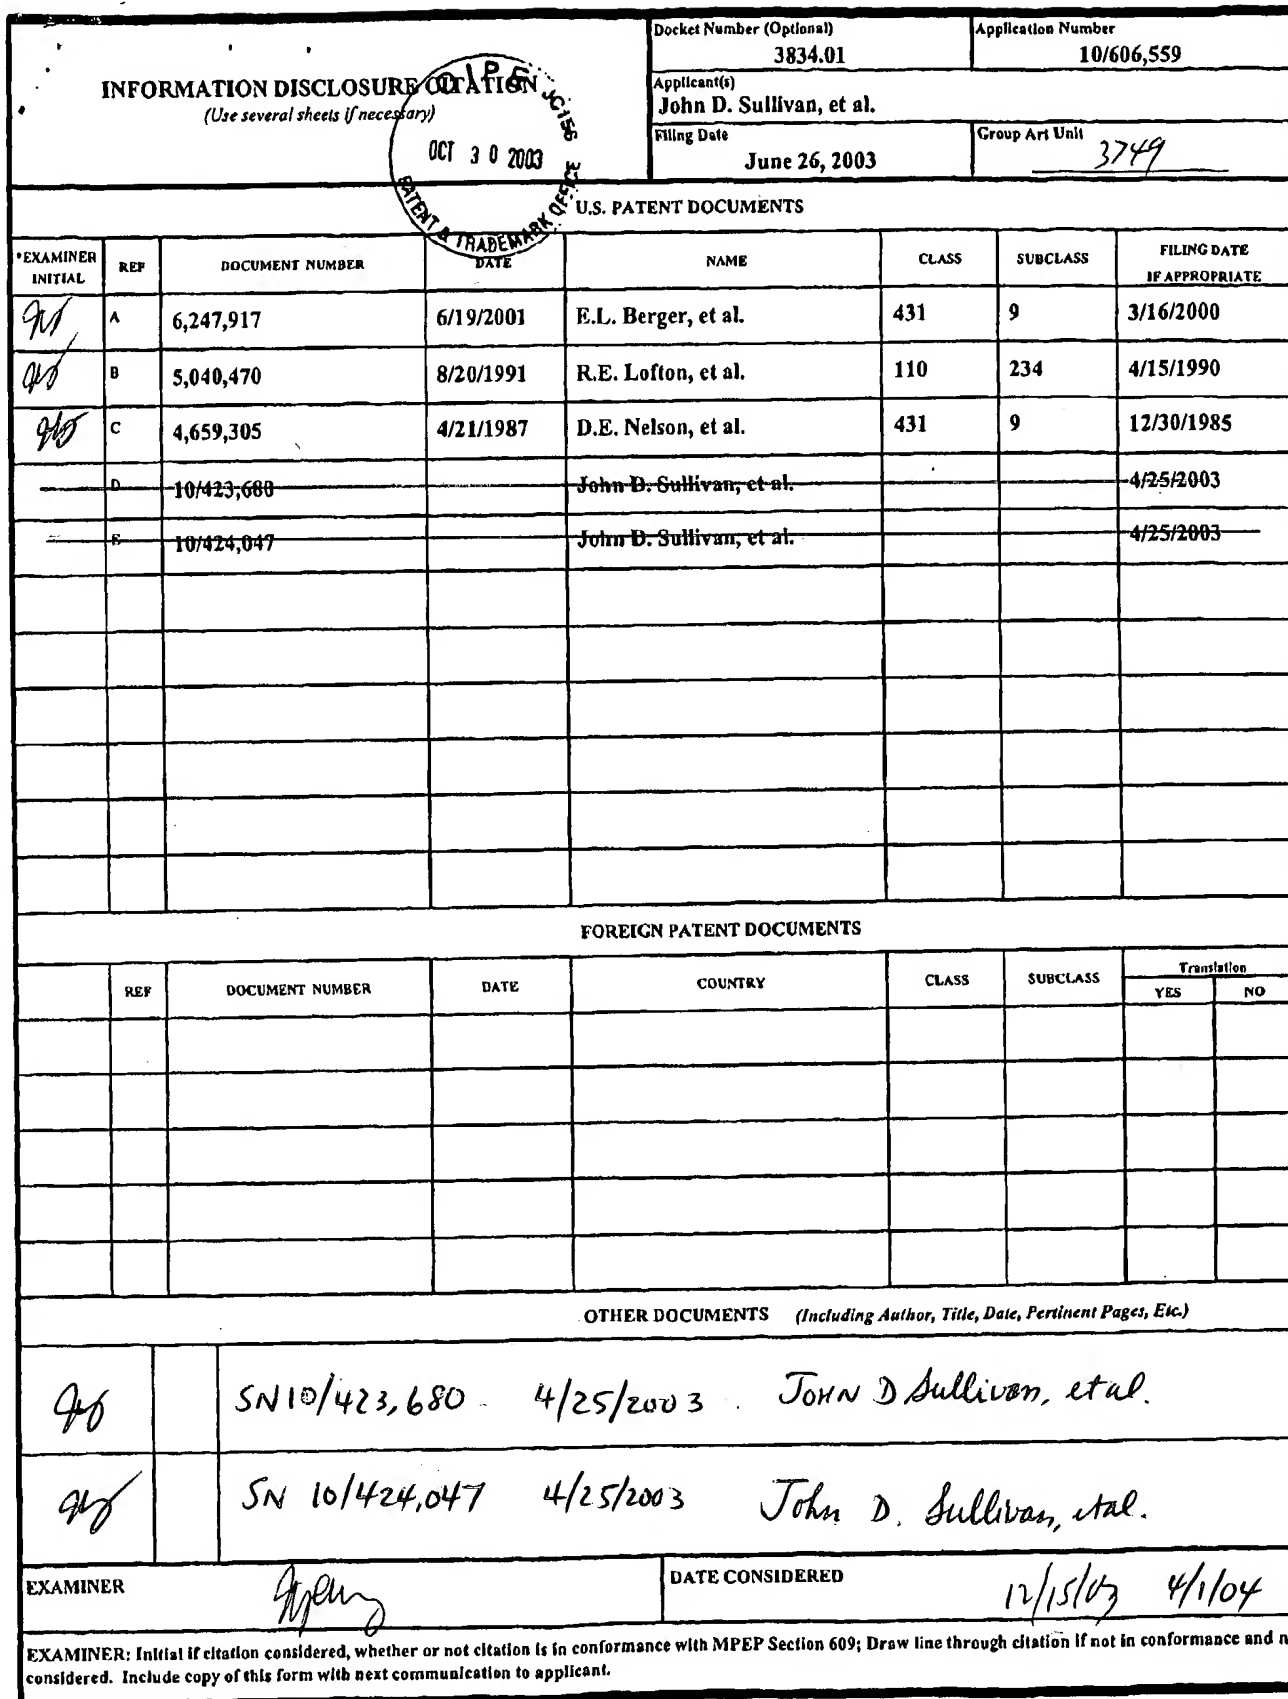 Docket Number (Optional)
3834.01
Application Number
10/606,559
INFORMATION DISCLOSURE CITATION
(Use several sheets if necessary)
Applicant(s)
John D. Sullivan, et al.
Filing Date
June 26, 2003
Group Art Unit
3749
OIPE JC156
OCT 30 2003
PATENT & TRADEMARK OFFICE
U.S. PATENT DOCUMENTS
*EXAMINER INITIAL REF DOCUMENT NUMBER DATE NAME CLASS SUBCLASS FILING DATE IF APPROPRIATE
A 6,247,917 6/19/2001 E.L. Berger, et al. 431 9 3/16/2000
B 5,040,470 8/20/1991 R.E. Lofton, et al. 110 234 4/15/1990
C 4,659,305 4/21/1987 D.E. Nelson, et al. 431 9 12/30/1985
D 10/423,680 John D. Sullivan, et al. 4/25/2003
E 10/424,047 John D. Sullivan, et al. 4/25/2003
FOREIGN PATENT DOCUMENTS
REF DOCUMENT NUMBER DATE COUNTRY CLASS SUBCLASS Translation
YES NO
OTHER DOCUMENTS (Including Author, Title, Date, Pertinent Pages, Etc.)
SN 10/423,680 4/25/2003 John D Sullivan, et al.
SN 10/424,047 4/25/2003 John D. Sullivan, et al.
EXAMINER
DATE CONSIDERED
12/15/03 4/1/04
EXAMINER: Initial if citation considered, whether or not citation is in conformance with MPEP Section 609; Draw line through citation if not in conformance and n
considered. Include copy of this form with next communication to applicant.